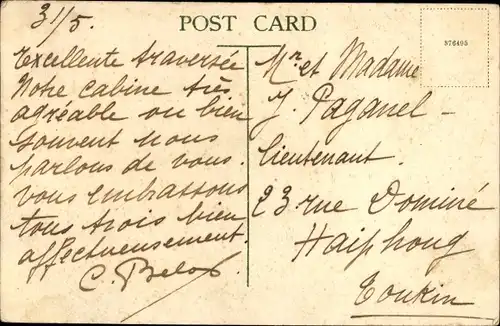 POST CARD
976495
31/5.
Excellente traversée
Notre cabine très
agréable ou bien
souvent nous
parlons de vous.
Vous embrassons
tous trois bien
affectueusement.
Mr et Madame
J. Paganel -
Lieutenant.
23 rue Dominé
Haïphong
Tonkin